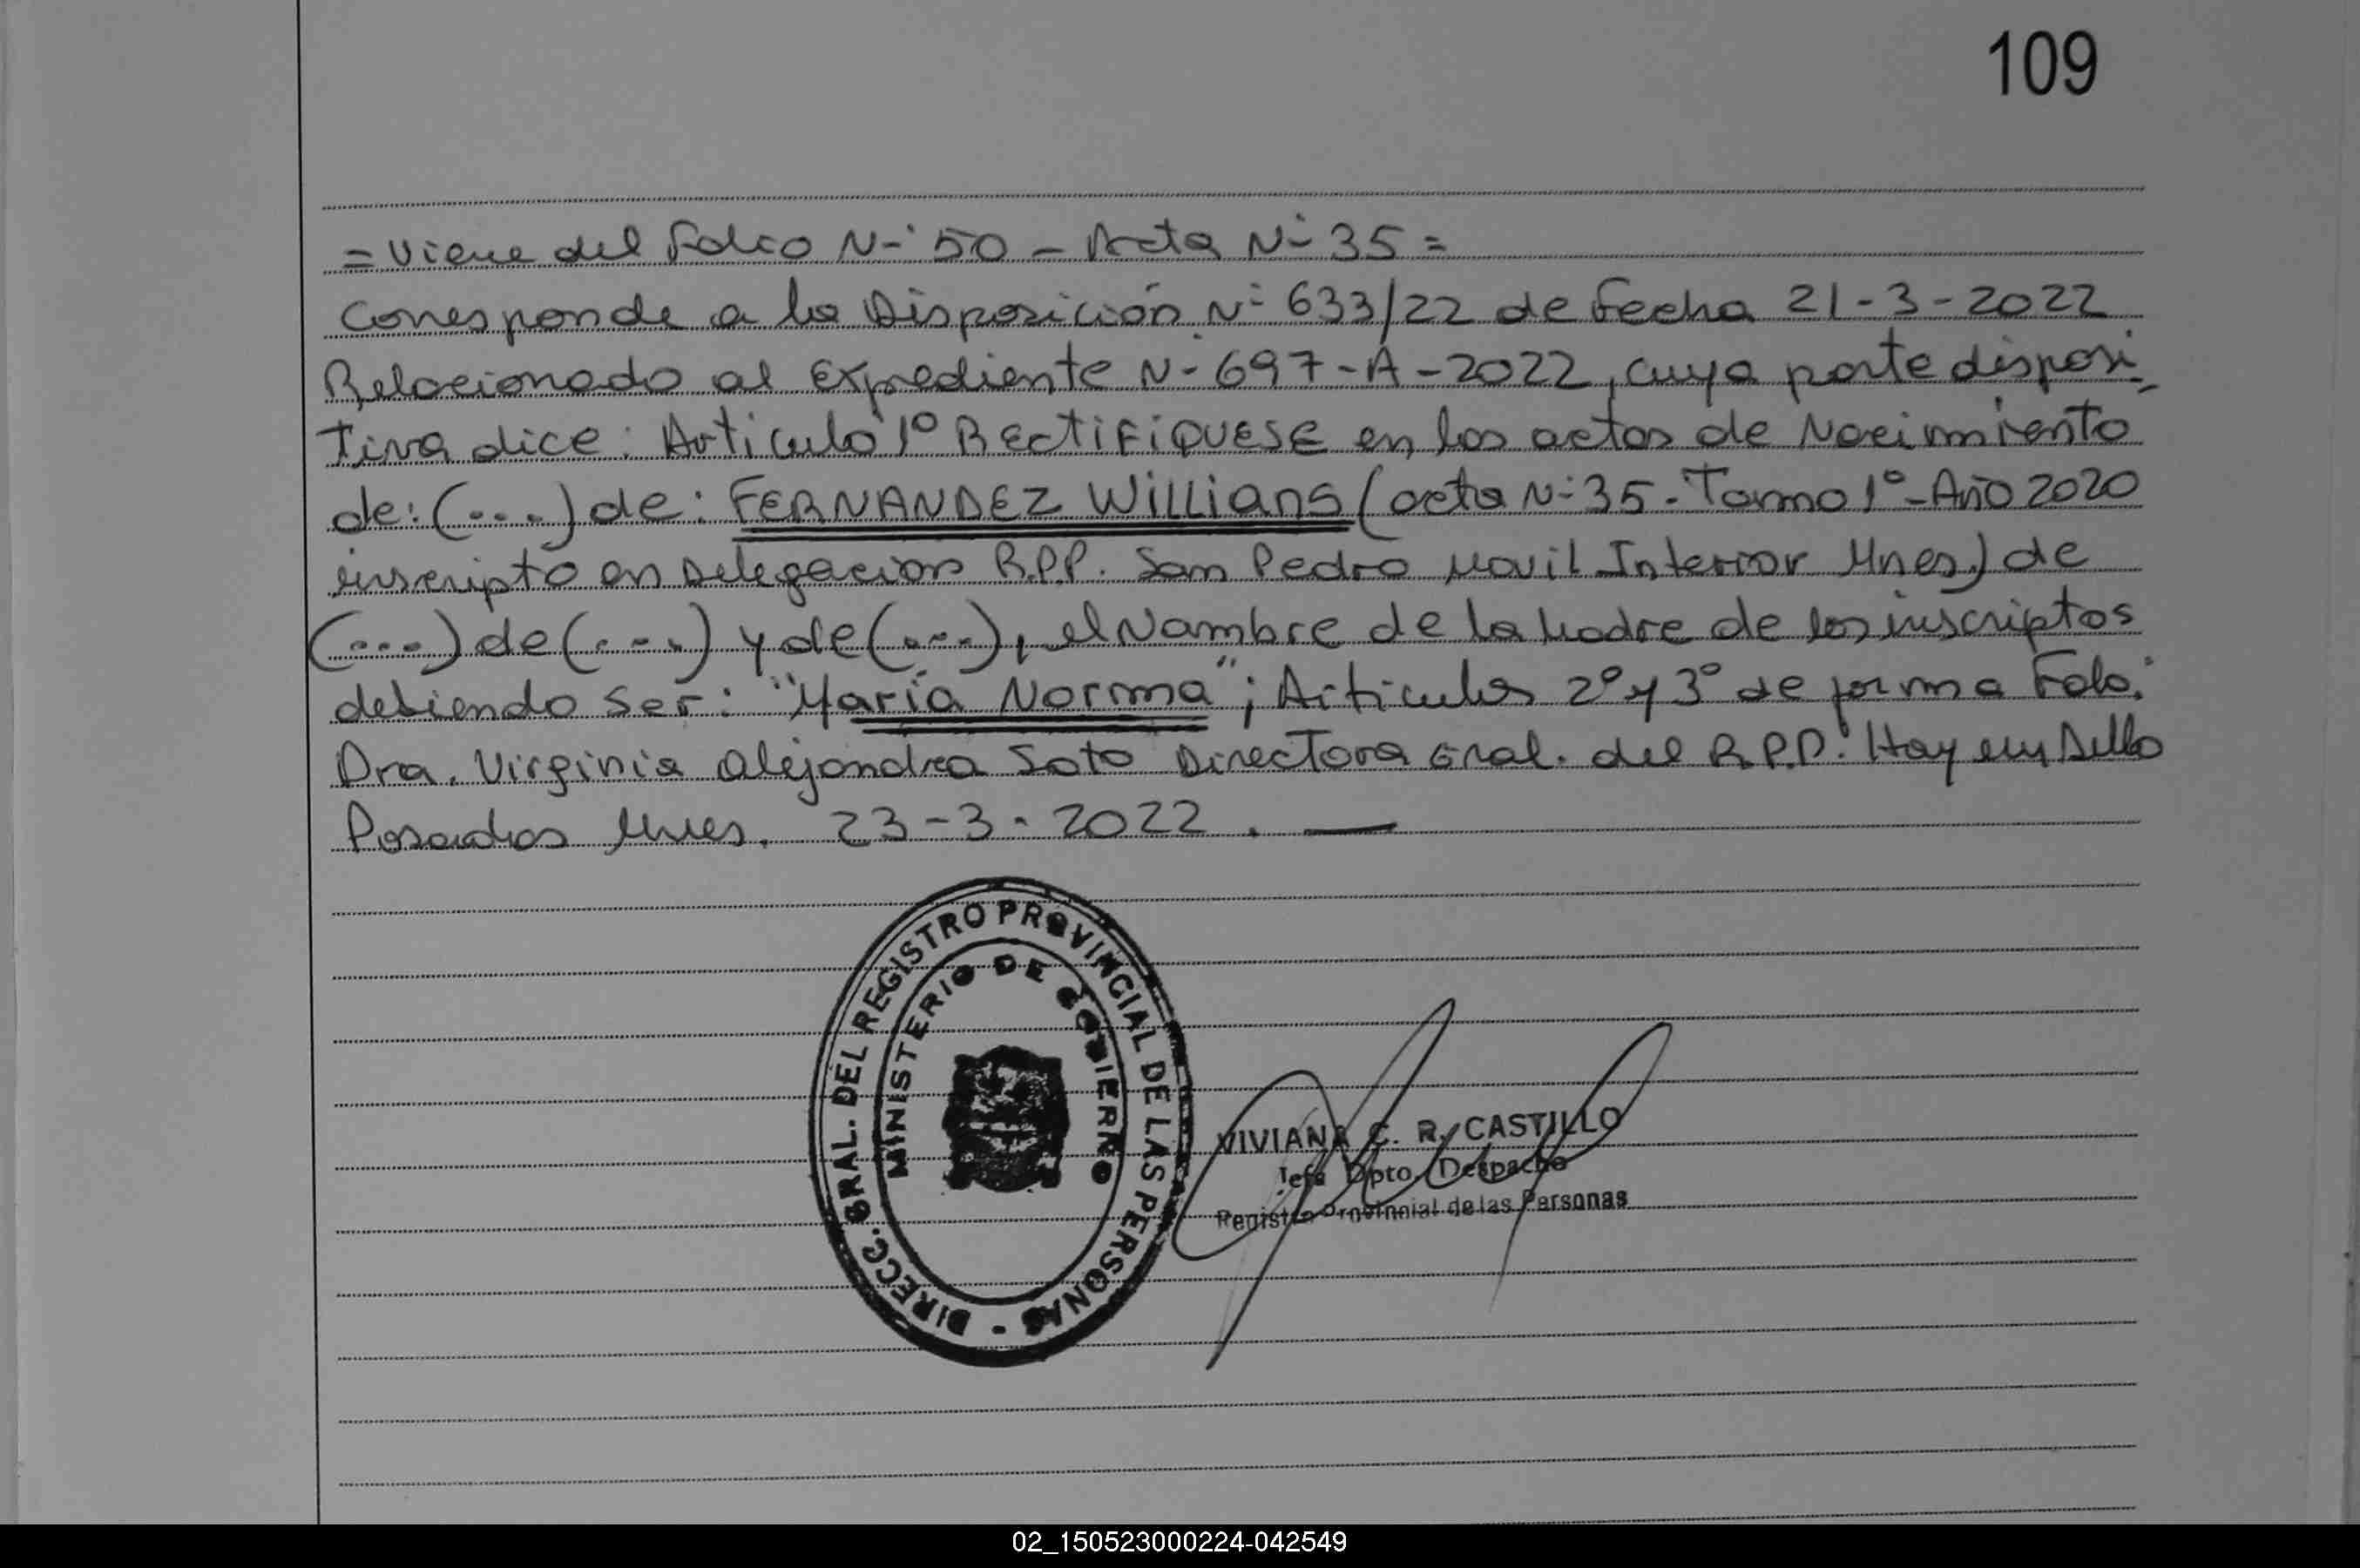 109
= Viene del Folio N° 50 - Acta N° 35 =
Corresponde a la Disposición N° 633/22 de fecha 21-3-2022
Relacionado al Expediente N° 697-A-2022, cuya parte disposi-
tiva dice: Artículo 1° RECTIFIQUESE en las actas de Nacimiento
de: (...) de: FERNANDEZ Willians (acta N° 35 - Tomo 1° - Año 2020
inscripto en Delegacion R.P.P. San Pedro Movil Interior Mnes.) de
(...) de (...) y de (...), el Nombre de la Madre de los inscriptos
debiendo ser: "María Norma"; Articulos 2° y 3° de forma Fdo.
Dra. Virginia Alejandra Soto Directora Gral. del R.P.P. Hay un Sello
Posadas Mnes. 23-3-2022. —
DIRECC. GRAL. DEL REGISTRO PROVINCIAL DE LAS PERSONAS -
MINISTERIO DE GOBIERNO
VIVIANA C. R. CASTILLO
Jefa Dpto. Despacho
Registro Provincial de las Personas
02_150523000224-042549